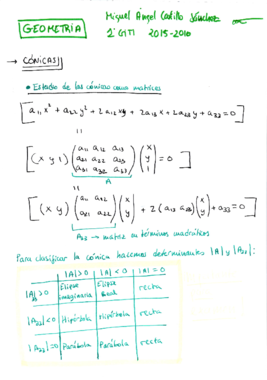 GEOMETRÍA
Miguel Ángel Castillo Sánchez
1º GITI 2015-2016
→ CÓNICAS
• Estudio de las cónicas como matrices
[a₁₁x² + a₂₂y² + 2a₁₂xy + 2a₁₃x + 2a₂₃y + a₃₃ = 0]
[(x y 1) (a₁₁ a₁₂ a₁₃ / a₂₁ a₂₂ a₂₃ / a₃₁ a₃₂ a₃₃) (x / y / 1) = 0]
A
[(x y) (a₁₁ a₁₂ / a₂₁ a₂₂) (x / y) + 2(a₁₃ a₂₃) (x / y) + a₃₃ = 0]
A₃₃ → matriz en términos cuadráticos
Para clasificar la cónica hacemos determinantes |A| y |A₃₃|:
|A|>0 |A|<0 |A|=0
|A₃₃|>0 Elipse imaginaria Elipse Real recta
|A₃₃|<0 Hipérbola Hipérbola recta
|A₃₃|=0 Parábola Parábola recta